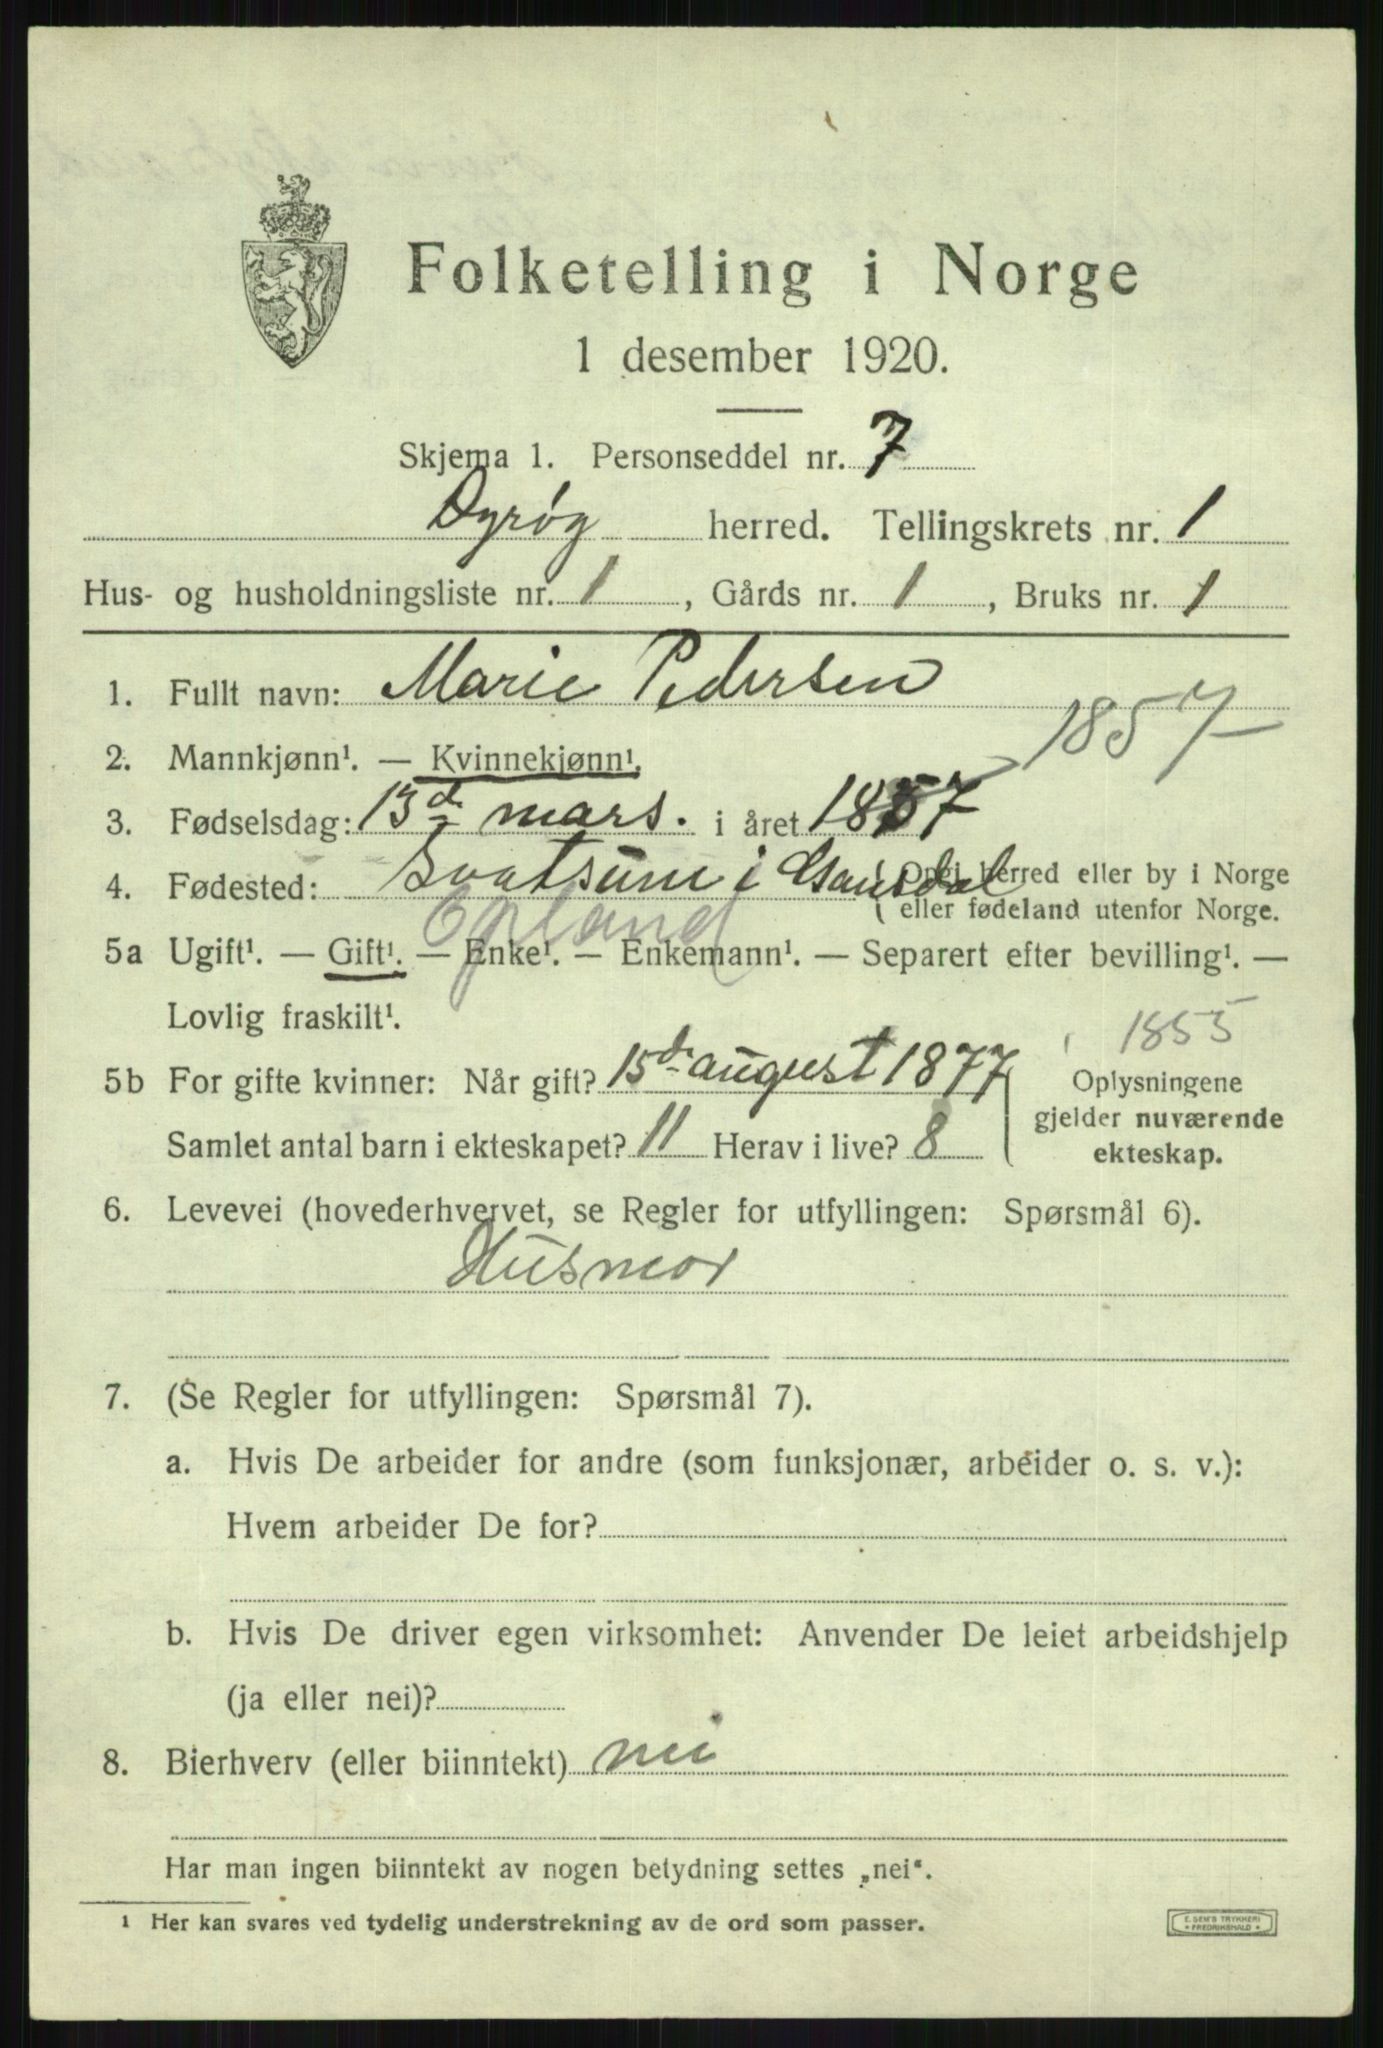 Folketelling i Norge
1 desember 1920.
Skjema 1. Personseddel nr. 7
Dyrøy herred. Tellingskrets nr. 1
Hus- og husholdningsliste nr. 1, Gårds nr. 1, Bruks nr. 1
1. Fullt navn: Marie Pedersen
1857
2. Mannkjønn¹. — Kvinnekjønn¹.
3. Fødselsdag: 13d mars. i året 1857
4. Fødested: Svatsum i Gausdal (Opgi herred eller by i Norge
eller fødeland utenfor Norge.
Opland
5a Ugift¹. — Gift¹. — Enke¹. — Enkemann¹. — Separert efter bevilling¹. —
Lovlig fraskilt¹.
1855
5b For gifte kvinner: Når gift? 15d august 1877 Oplysningene
gjelder nuværende
Samlet antal barn i ekteskapet? 11 Herav i live? 8 ekteskap.
6. Levevei (hovederhvervet, se Regler for utfyllingen: Spørsmål 6).
Husmor
7. (Se Regler for utfyllingen: Spørsmål 7).
a. Hvis De arbeider for andre (som funksjonær, arbeider o. s. v.):
Hvem arbeider De for?
b. Hvis De driver egen virksomhet: Anvender De leiet arbeidshjelp
(ja eller nei)?
8. Bierhverv (eller biinntekt) nei
Har man ingen biinntekt av nogen betydning settes „nei“.
¹ Her kan svares ved tydelig understrekning av de ord som passer.
E. SEM'S TRYKKERI
* FREDRIKSHALD *